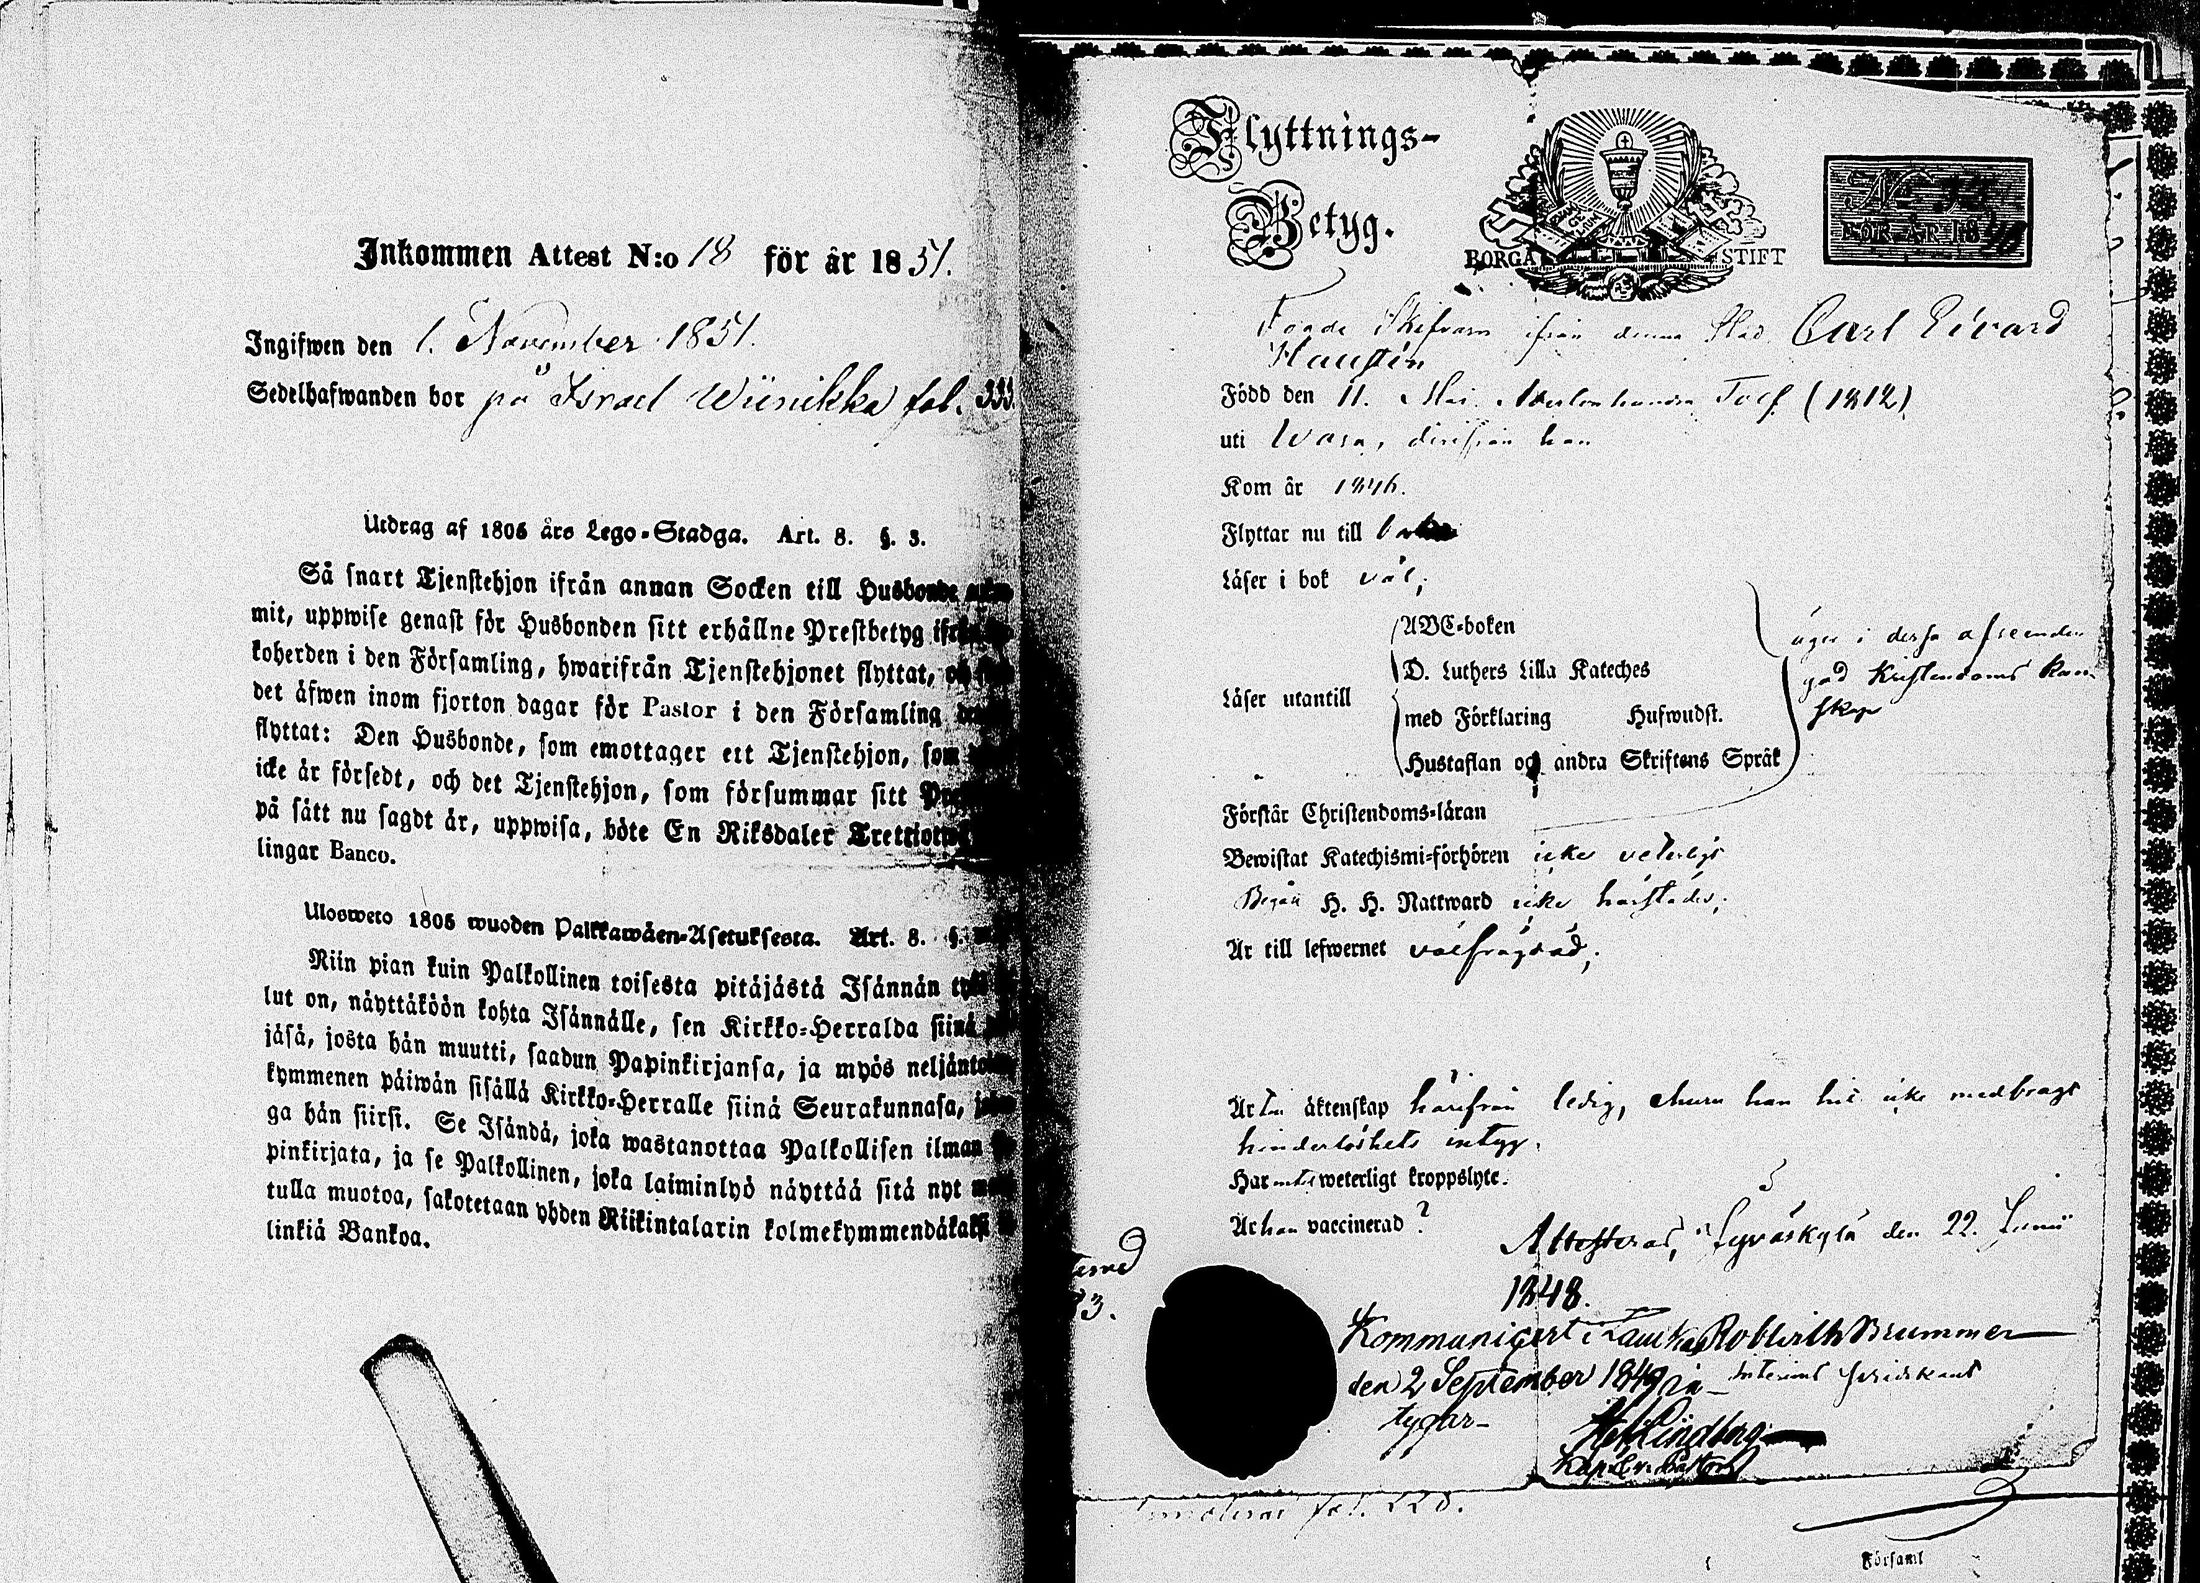 Inkommen Attest N:o 18 för år 1851.
Ingifwen den 1. November 1851.
Sedelhafwanden bor på Israel Wiinikka fol. 333.
Utdrag af 1805 års Lego-Stadga. Art. 8. §. 3.
Så snart Tjenstehjon ifrån annan Socken till Husbonde
mit, uppwise genast för Husbonden sitt erhållne Prestbetyg
koherden i den Församling, hwarifrån Tjenstehjonet flyttat,
det äfwen inom fjorton dagar för Pastor i den Församling
flyttat: Den Husbonde, som emottager ett Tjenstehjon, som
icke är försedt, och det Tjenstehjon, som försummar sitt
på sätt nu sagdt är, uppwisa, böte En Riksdaler
lingar Banco.
Ulosweto 1805 wuoden Palkkawäen-Asetuksesta. Art. 8. §.
Niin pian kuin Palkollinen toisesta pitäjästä Isännän
lut on, näyttäköön kohta Isännälle, sen Kirkko-Herralda siinä
jäsä, josta hän muutti, saadun Papinkirjansa, ja myös
kymmenen päiwän sisällä Kirkko-Herralle siinä Seurakunnasa,
ga hän siirsi. Se Isändä, joka wastanottaa Palkollisen ilman
pinkirjata, ja se Palkollinen, joka laiminlyö näyttää sitä nyt
tulla muotoa, sakotetaan yhden Riikintalarin kolmekymmendäkaksi
linkiä Bankoa.
Flyttnings-
Betyg.
BORGÅ STIFT
FÖR ÅR 1848
ifrån denna Stad Carl Edvard
Född den 11. Maj Adertonhundra Tolf (1812)
uti Wasa, dirifrån han
Kom år 1846.
Flyttar nu till
Läser i bok väl;
Läser utantill
ABC-boken
D. Luthers Lilla Kateches
med Förklaring Hufwudst.
Hustaflan och andra Skriftens Språk
äger i dessa afseenden
god Kristendoms kun-
skap
Förstår Christendoms-läran
Bewistat Katechismi-förhören icke veterligt
Begått H. H. Nattward icke härstädes;
Är till lefwernet välfrägdad;
Är till äktenskap härifrån ledig, ehuru han hit icke medbragt
hinderlöshets intyg.
Har intet weterligt kroppslyte.
Är han vaccinerad?
Attesteras, Jyväskylä den 22. Junii
1848.
Kommunicert i Rob. Brummer
den 2 September 1849 in-
tygar-
Lindberg
fol. 220.
Församl